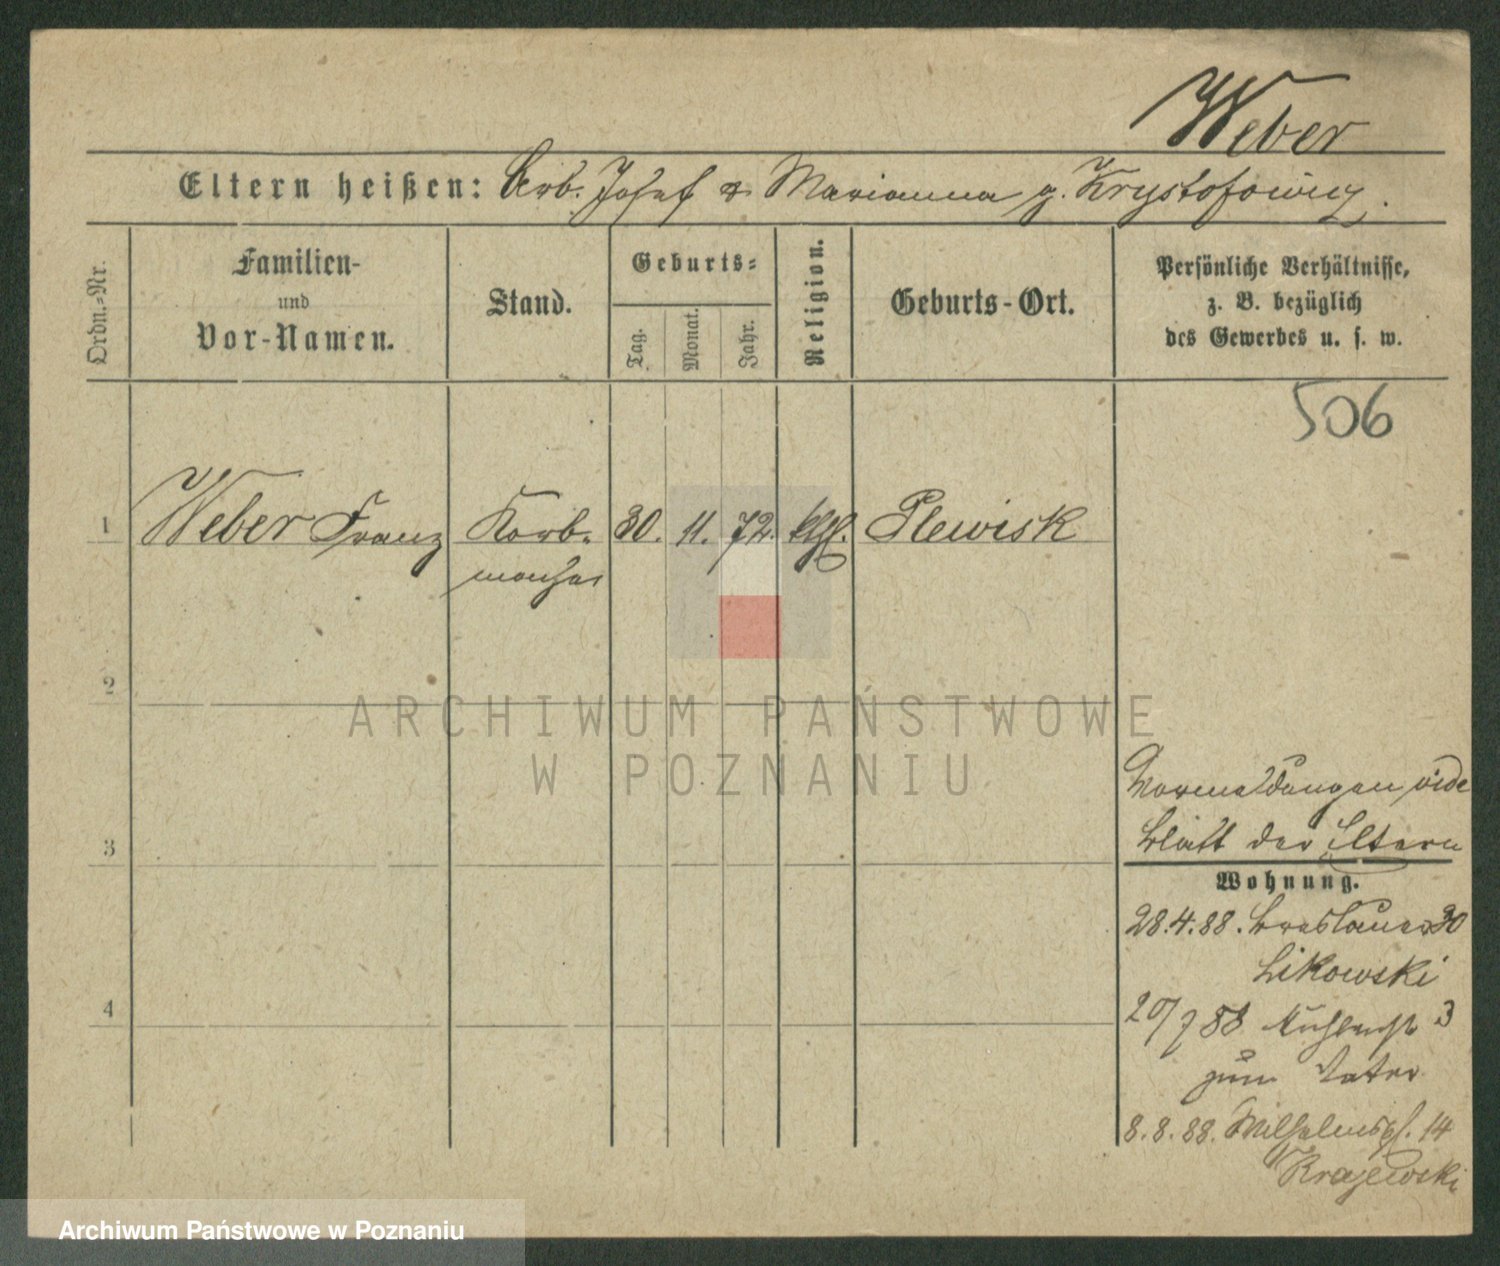 Weber
Eltern heißen: Arb. Josef & Marianna g. Krystofowicz.
Ordn.-Nr.
Familien-
und
Vor-Namen.
Stand.
Geburts-
Tag.
Monat.
Jahr.
Religion.
Geburts-Ort.
Persönliche Verhältnisse,
z. B. bezüglich
des Gewerbes u. s. w.
506
1 Weber Franz Korb- 30. 11. 72. kthl. Plewisk
macher
2
3
4
ARCHIWUM PAŃSTWOWE
W POZNANIU
Vormeldungen vide
Blatt der Eltern
Wohnung.
28.4.88. Breslauer 30
Likowski
20/7 88 Mühlenst 3
zum Vater
8.8.88. Wilhelmspl. 14
Krajewski
Archiwum Państwowe w Poznaniu